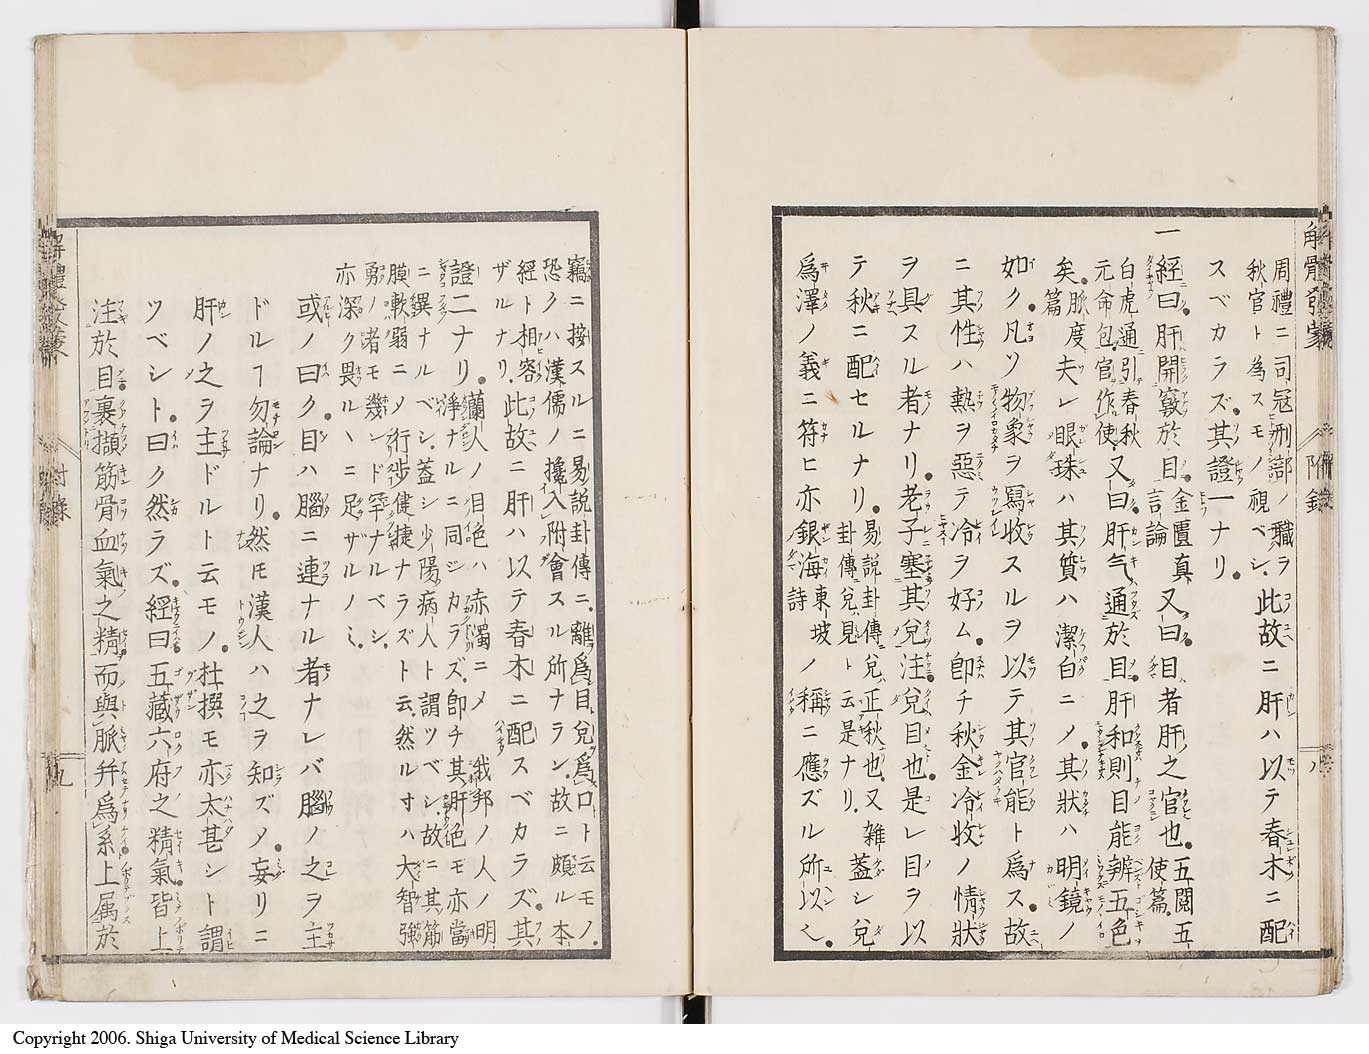 解體發蒙 附錄 八
周禮ニ司冦刑部ノ職ヲ
秋官ト為スモノ視ベシ此故ニ肝ハ以テ春木ニ配
スベカラズ其證一ナリ
一
經曰肝開竅於目金匱真
言論又曰目者肝之官也五閱五
使篇
白虎通引春秋
元命包官作使又曰肝气通於目肝和則目能辨五色
矣脈度
篇夫レ眼珠ハ其質ハ潔白ニメ其狀ハ明鏡ノ
如ク凡ソ物象ヲ寫收スルヲ以テ其官能ト爲ス故
ニ其性ハ熱ヲ惡テ冷ヲ好ム卽チ秋金冷收ノ情狀
ヲ具スル者ナリ老子塞其兌注兌目也是レ目ヲ以
テ秋ニ配セルナリ易說卦傳兌正秋也又雜
卦傳兌見ト云是ナリ蓋シ兌
爲澤ノ義ニ符ヒ亦銀海東坡
詩ノ稱ニ應ズル所以也
竊ニ按スルニ易說卦傳ニ離爲目兌爲口ト云モノ
恐クハ漢儒ノ攙入附會スル所ナラン故ニ頗ル本
經ト相容ザルナリ此故ニ肝ハ以テ春木ニ配スベカラズ其
證二ナリ蘭人ノ目色ハ赤濁ニメ我邦ノ人ノ明
淨ナルニ同ジカラズ卽チ其肝色モ亦當
ニ異ナルベシ蓋シ少陽病人ト謂ツベシ故ニ其筋
膜軟弱ニノ行步健捷ナラズト云然ルトキハ大智強
勇ノ者モ幾ンド罕ナルベシ
亦深ク畏ルヽニ足ザルノミ
或ノ曰ク目ハ腦ニ連ナル者ナレバ腦ノ之ヲ主
ドルヿ勿論ナリ然モ漢人ハ之ヲ知ズノ妄リニ
肝ノ之ヲ主ドルト云モノ杜撰モ亦太甚シト謂
ツベシト曰ク然ラズ經曰五藏六府之精氣皆上
注於目裹擷筋骨血氣之精而與脈并爲系上属於
解體發蒙 附錄 九
Copyright 2006. Shiga University of Medical Science Library